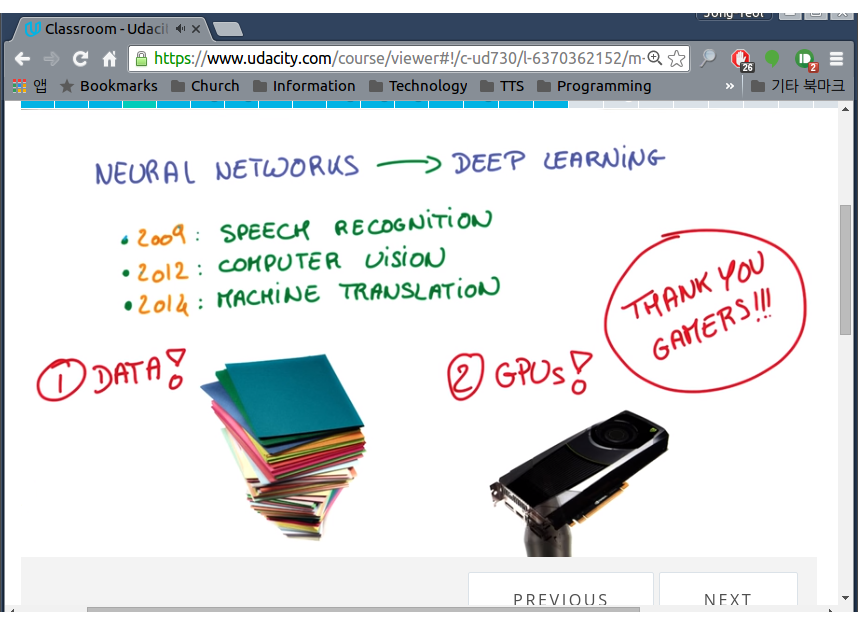 Jong Yeol
Classroom - Udacit
https://www.udacity.com/course/viewer#!/c-ud730/l-6370362152/m-
26
2
앱 Bookmarks Church Information Technology TTS Programming » 기타 북마크
NEURAL NETWORKS → DEEP LEARNING
• 2009: SPEECH RECOGNITION
• 2012: COMPUTER VISION
• 2014: MACHINE TRANSLATION
THANK YOU
GAMERS!!!
① DATA!
② GPUs!
PREVIOUS NEXT